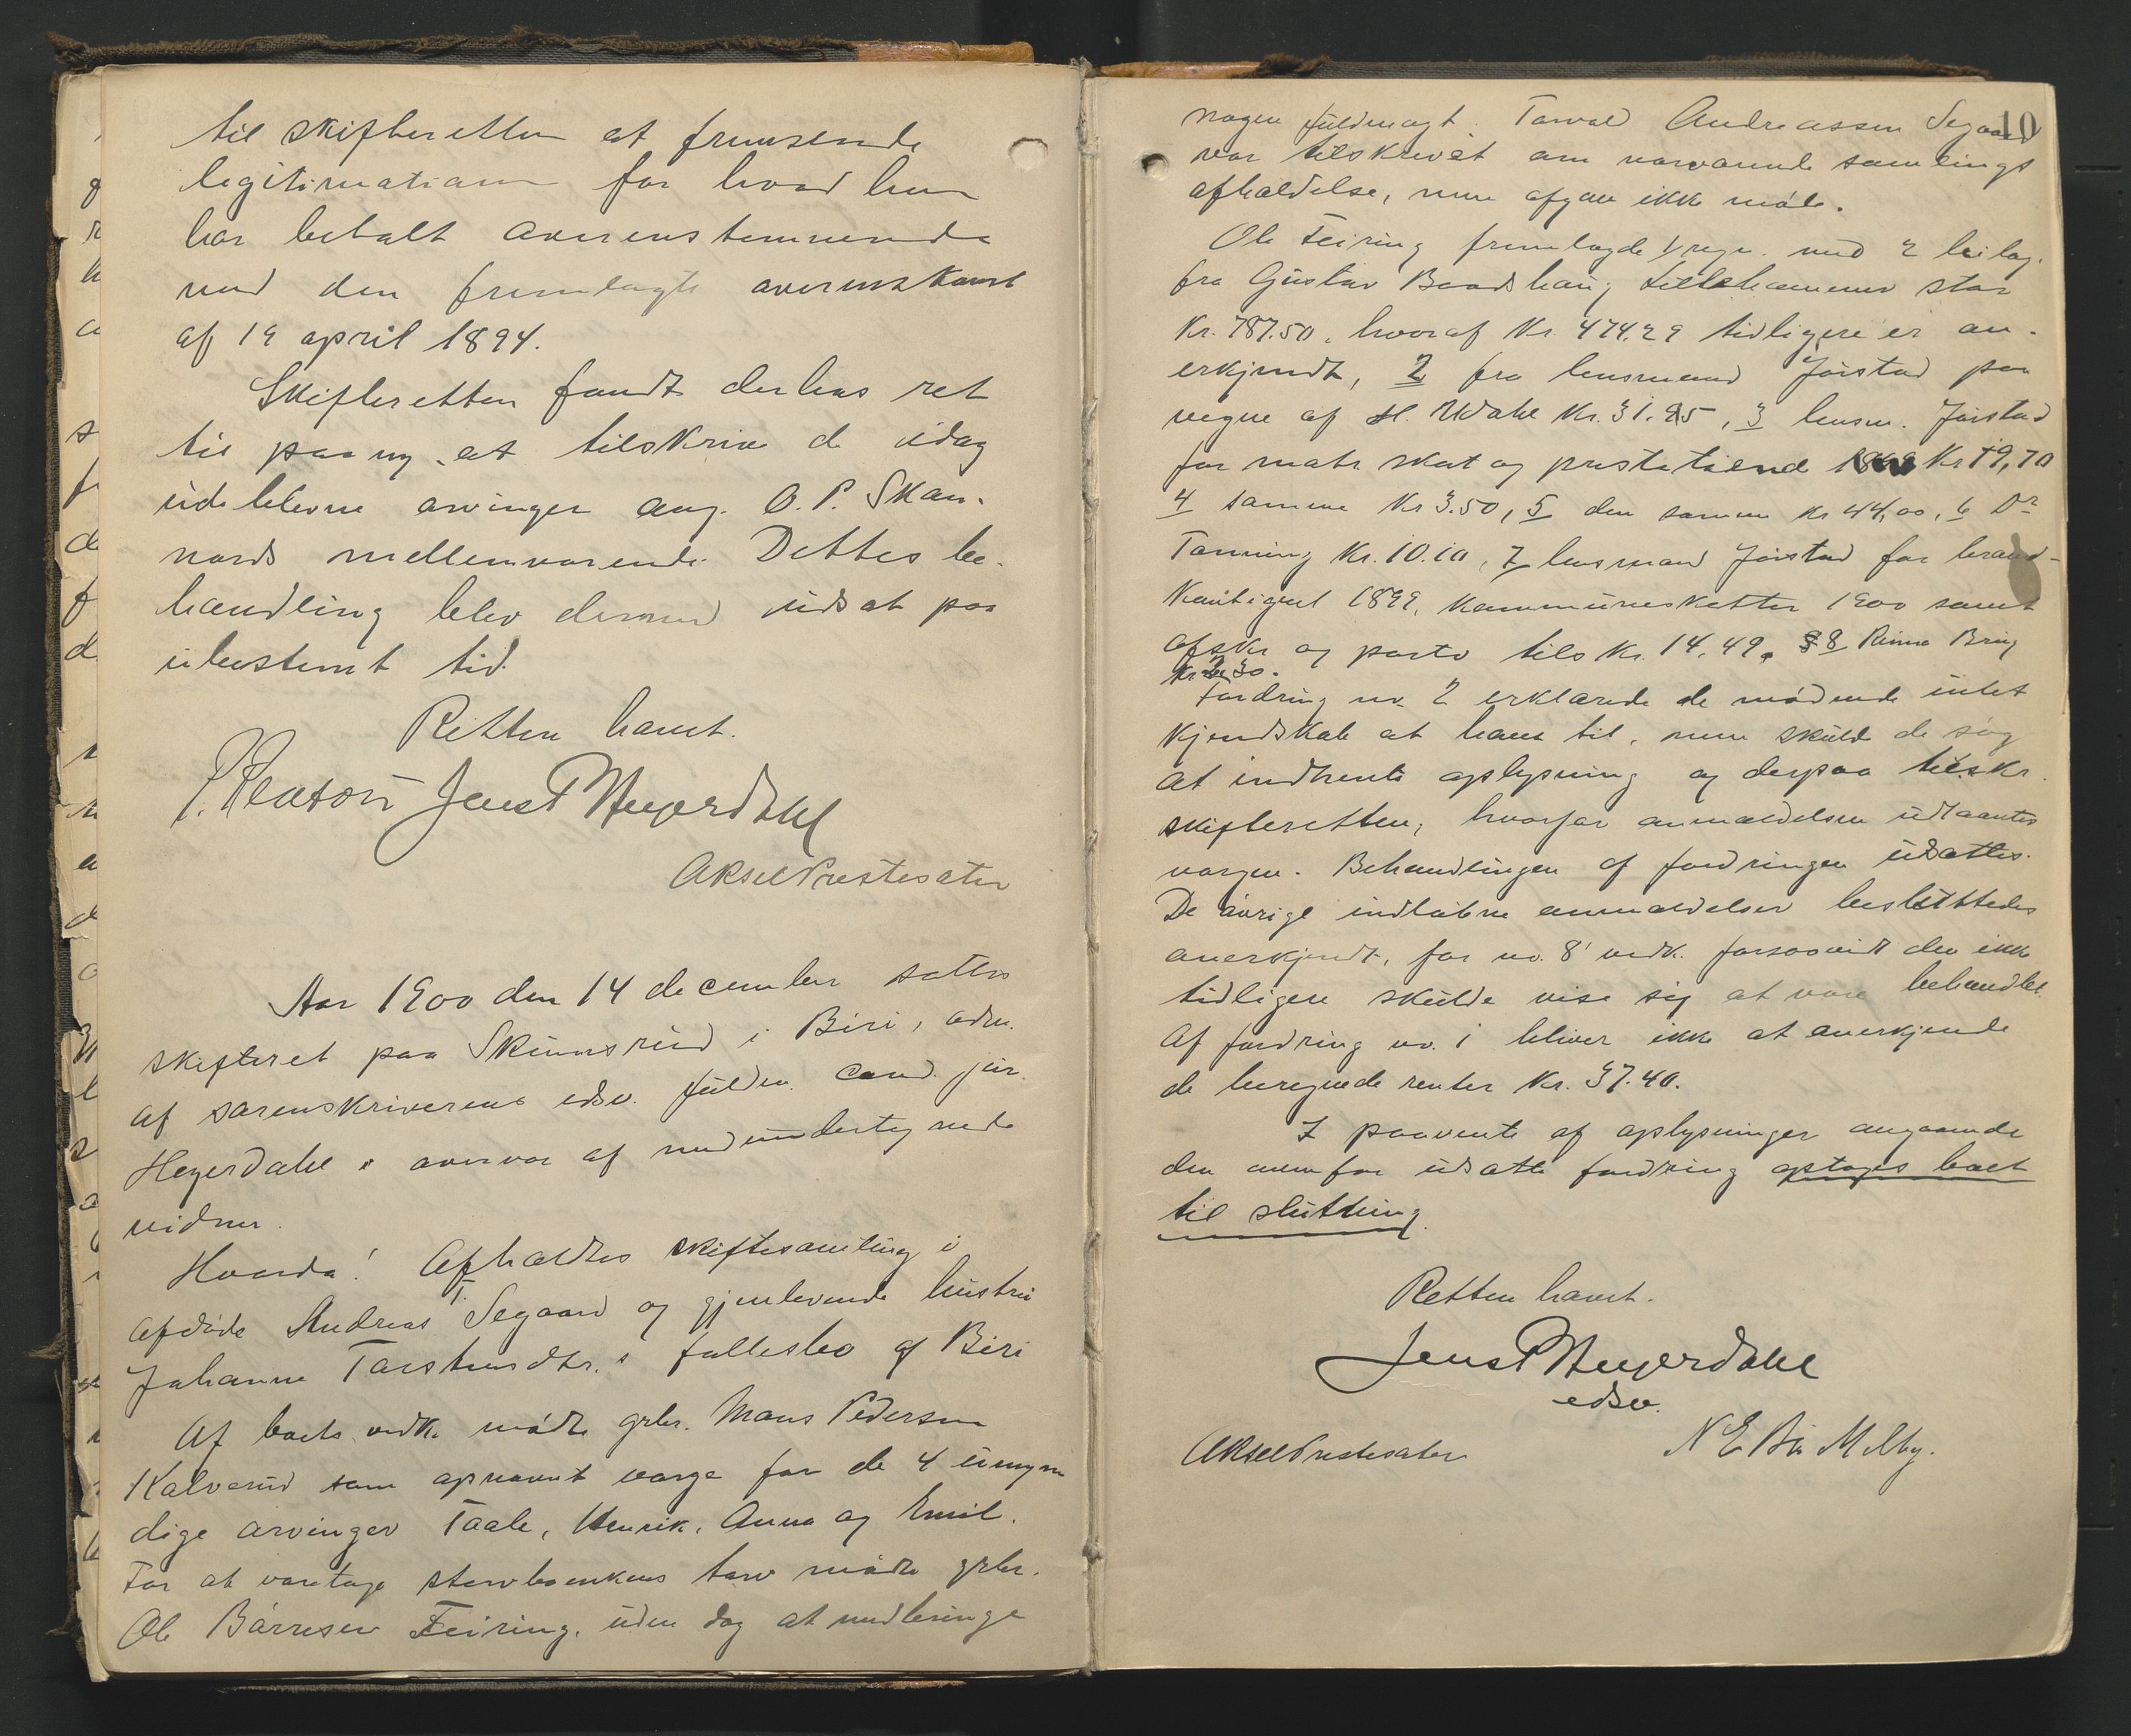 til skifteretten at fremsende
legitimation for hvad hun
har betalt overensstemmende
med den fremlagte overenskomst
af 19 april 1894.
Skifteretten fandt derhos ret
til paany at tilskrive de idag
udeblevne arvinger ang. O. P. Skan-
nords mellemværende. Dettes be-
handling blev dermed udsat paa
ubestemt tid.
Retten hævet.
Jens P Heyerdahl
Aksel Prestesæter
Aar 1900 den 14 december sattes
skifteret paa Skumsrud i Biri, adm.
af sorenskriverens edsv. fuldm. cand. jur.
Heyerdahl i overvær af medundertegnede
vidner.
Hvorda! Afholdtes skiftesamling i
afdøde Andreas T. Segaard og gjenlevende hustru
Johanne Torstensdtr.s fællesbo af Biri
Af boets vedk. mødte grbr. Mons Pedersen
Kalverud som opnævnt værge for de 4 umyn
dige arvinger Taale, Henrik, Anna og Emil.
For at varetage stervboenkens tarv mødte grbr.
Ole Børresen Feiring, uden dog at medbringe
10
nogen fuldmagt. Torval Andreassen Segaard
var tilskrevet om nærværende samlings
afholdelse, men afgav ikke møde.
Ole Feiring fremlagde 1/ regn. med 2 bilag
fra Gustav Baadshaug Lillehammer stor
Kr. 787.50, hvoraf Kr. 474.29 tidligere er an-
erkjendt, 2 fra lensmand Jøistad paa
vegne af H. Wahl Kr. 31.95, 3 lensm. Jøistad
for matr skat og prestetiende Kr 19,70
4 samme Kr 3.50, 5 den samme kr 44,00, 6 Dr
Tønning Kr. 10.10, 7 lensmand Jøistad for brand-
kontigent 1899, kommuneskatter 1900 samt
afskr og porto tils Kr. 14.49, 8 Rinna Brug
kr 30.
Fordring no. 2 erklærede de mødende intet
kjendskab at have til, men skulde de søge
at indhente oplysning og derpaa tilskr.
skifteretten, hvorfor anmeldelsen udlaantes
værgen. Behandlingen af fordringen udsattes.
De øvrige indløbne anmeldelser besluttedes
anerkjendt, for no. 8' vedk. forsaavidt den ikke
tidligere skulde vise sig at være behandlet
Af fordring no. 1 bliver ikke at anerkjende
de beregnede renter Kr. 37.40.
I paavente af oplysninger angaaende
den ovenfor udsatte fordring optoges boet
til slutning.
Retten hævet.
Jens P Heyerdahl
edsv.
Aksel Prestesæter